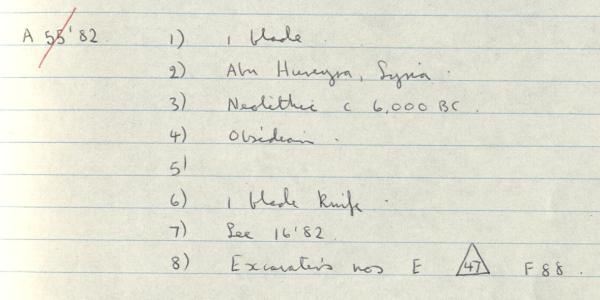 A 55'82 1) 1 blade
2) Abu Hureyra, Syria.
3) Neolithic c 6,000 BC.
4) Obsidian.
5)
6) 1 blade knife.
7) See 16'82.
8) Excavator's nos E 47 F88.